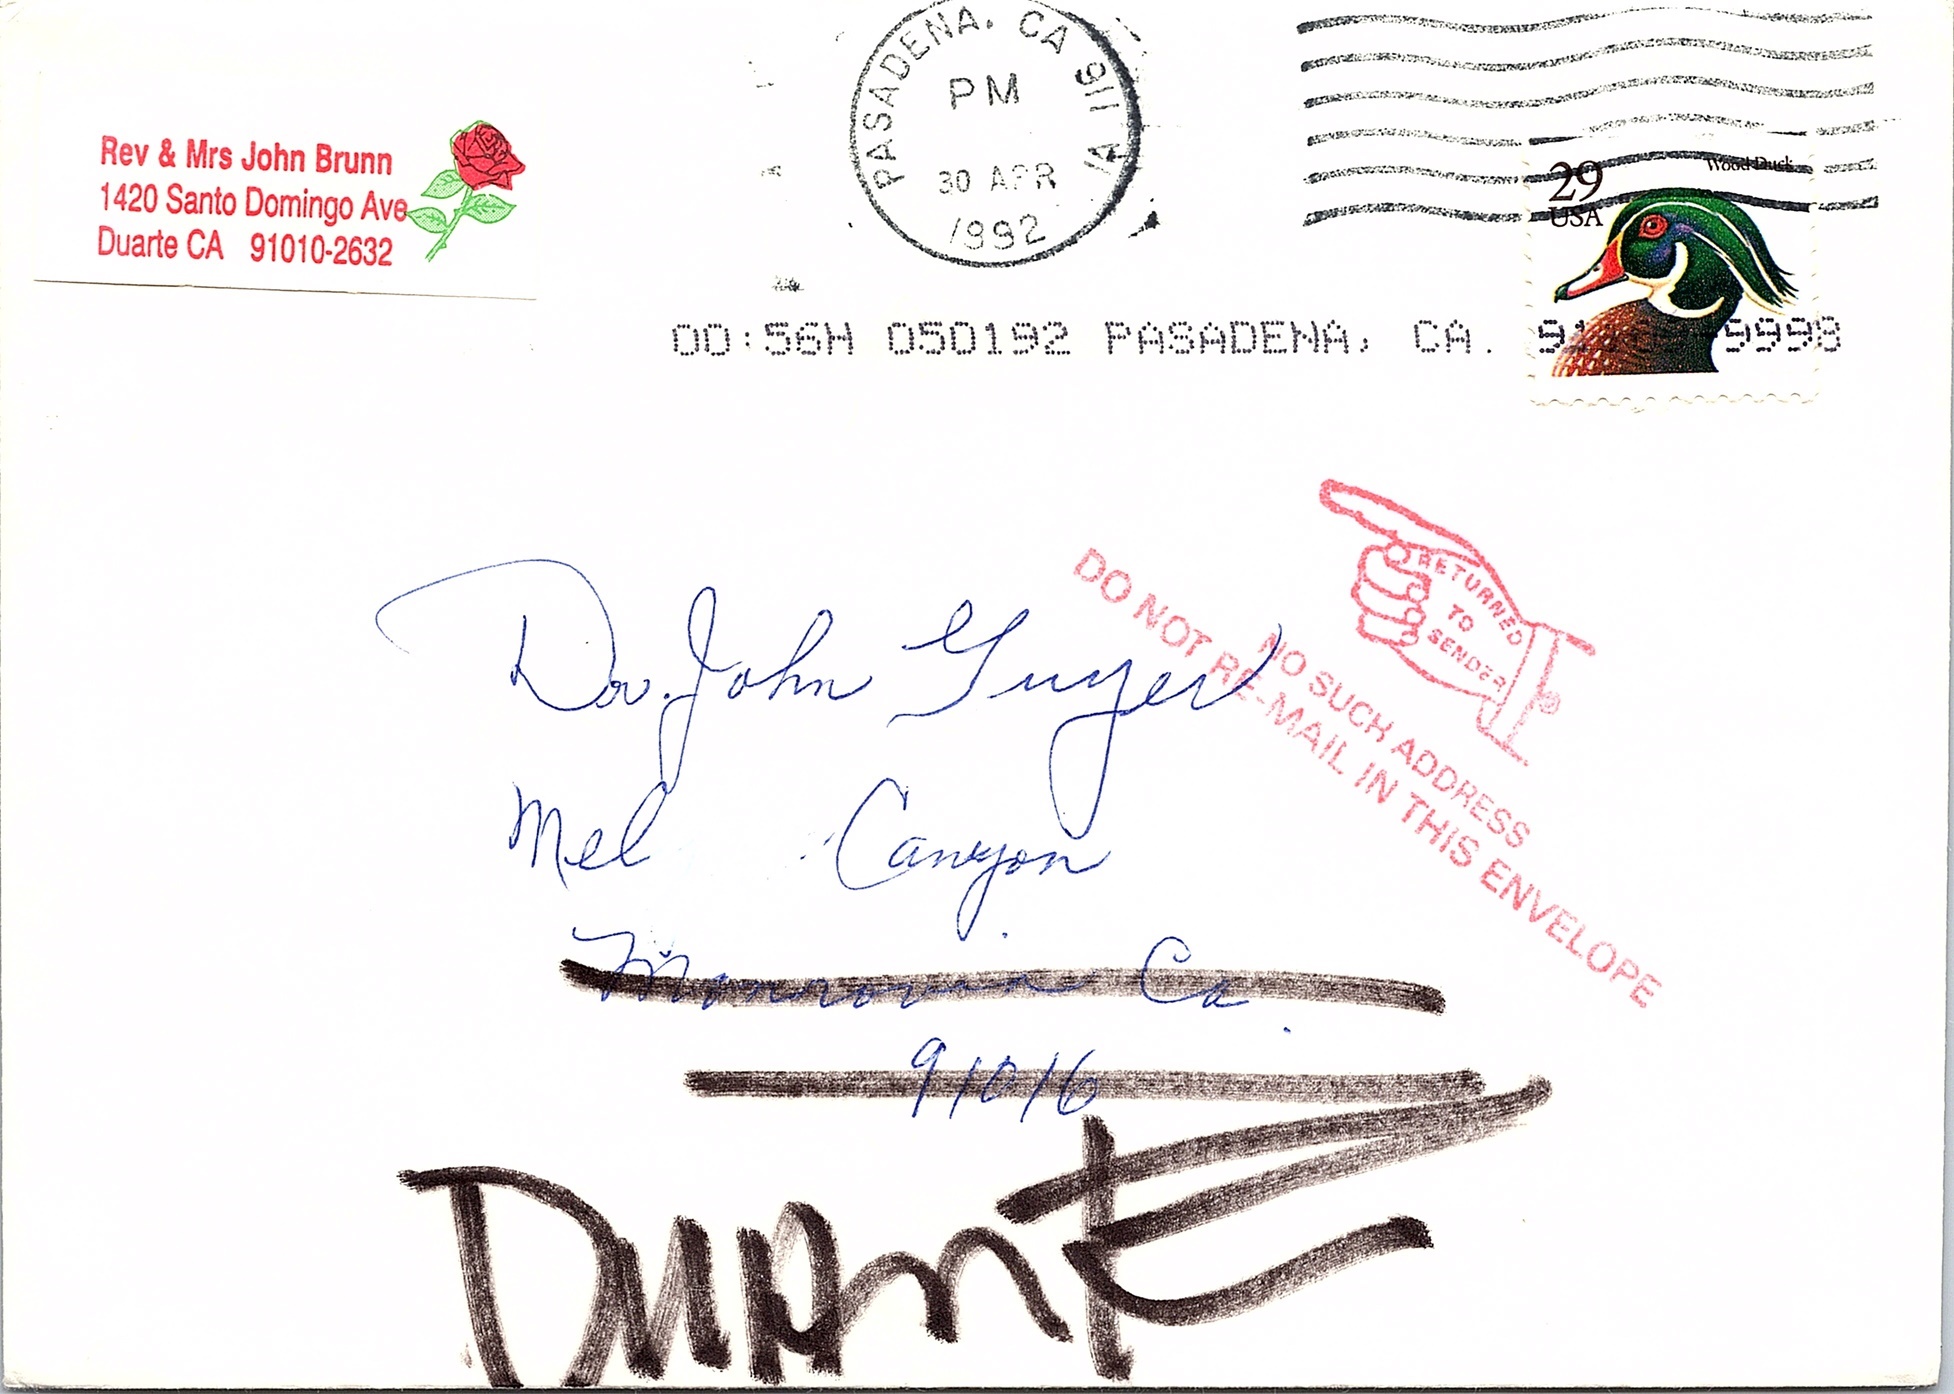 Rev & Mrs John Brunn
1420 Santo Domingo Ave
Duarte CA 91010-2632
PASADENA, CA 911
PM
30 APR
1992
29
USA
Wood Duck
00:56H 050192 PASADENA, CA. 9998
RETURNED
TO
SENDER
NO SUCH ADDRESS
DO NOT RE-MAIL IN THIS ENVELOPE
Dr. John Guyer
Mel Canyon
Monrovia Ca
91016
DUARTE